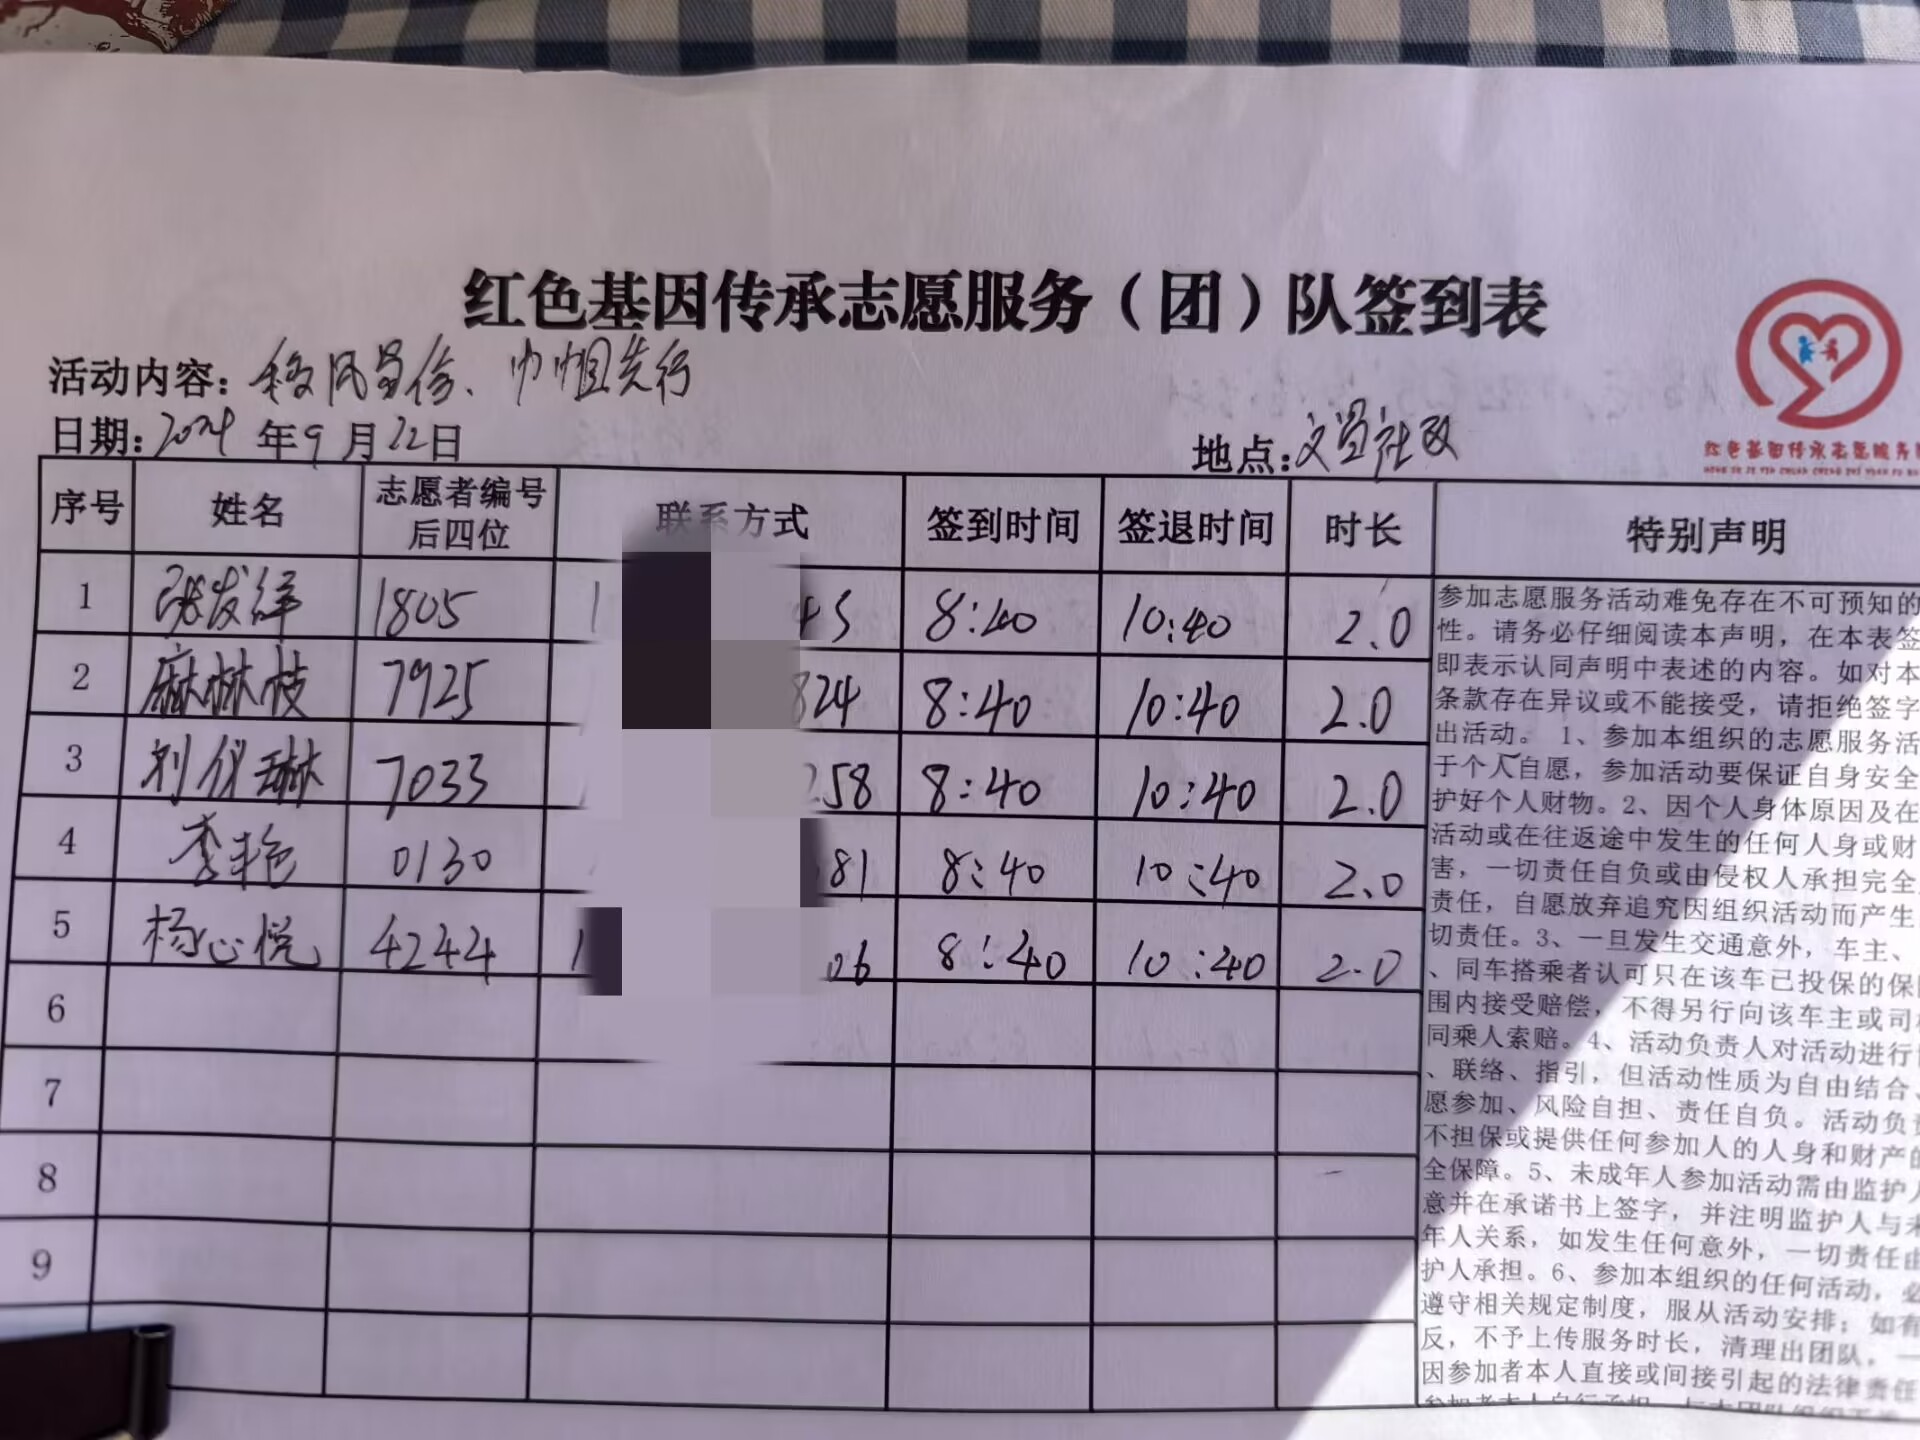 红色基因传承志愿服务（团）队签到表
活动内容：移风易俗、巾帼先行
日期：2024年9月22日
地点：文昌社区
红色基因传承志愿服务
序号 姓名 志愿者编号后四位 联系方式 签到时间 签退时间 时长 特别声明
1 张发祥 1805 1 43 8:40 10:40 2.0
2 麻林枝 7925 824 8:40 10:40 2.0
3 刘仪琳 7033 258 8:40 10:40 2.0
4 李艳 0130 81 8:40 10:40 2.0
5 杨心悦 4244 1 06 8:40 10:40 2.0
6
7
8
9
参加志愿服务活动难免存在不可预知的
性。请务必仔细阅读本声明，在本表签
即表示认同声明中表述的内容。如对本
条款存在异议或不能接受，请拒绝签字
出活动。 1、参加本组织的志愿服务活
于个人自愿，参加活动要保证自身安全
护好个人财物。2、因个人身体原因及在
活动或在往返途中发生的任何人身或财
害，一切责任自负或由侵权人承担完全
责任，自愿放弃追究因组织活动而产生
切责任。3、一旦发生交通意外，车主、
、同车搭乘者认可只在该车已投保的保
围内接受赔偿，不得另行向该车主或司
同乘人索赔。4、活动负责人对活动进行
、联络、指引，但活动性质为自由结合、
愿参加、风险自担、责任自负。活动负
不担保或提供任何参加人的人身和财产的
全保障。5、未成年人参加活动需由监护
意并在承诺书上签字，并注明监护人与未
年人关系，如发生任何意外，一切责任由
护人承担。6、参加本组织的任何活动，必
遵守相关规定制度，服从活动安排；如有
反，不予上传服务时长，清理出团队，一
因参加者本人直接或间接引起的法律责任